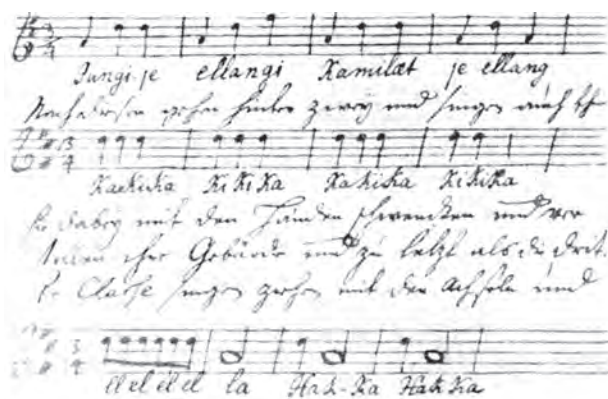 Dangi-je ellangi Kamilæt je ellang
Nach diesen gehen hinter zwey und singen auch
Kaekika Ki Ki Ka Kakika KiKiKa
Sie dabey mit den Händen schwencken und
ihre Gebärde und zu letzt als die drit.
te Classe singen gehen mit den Achseln und
el el el el la Hak-Ka Hak Ka